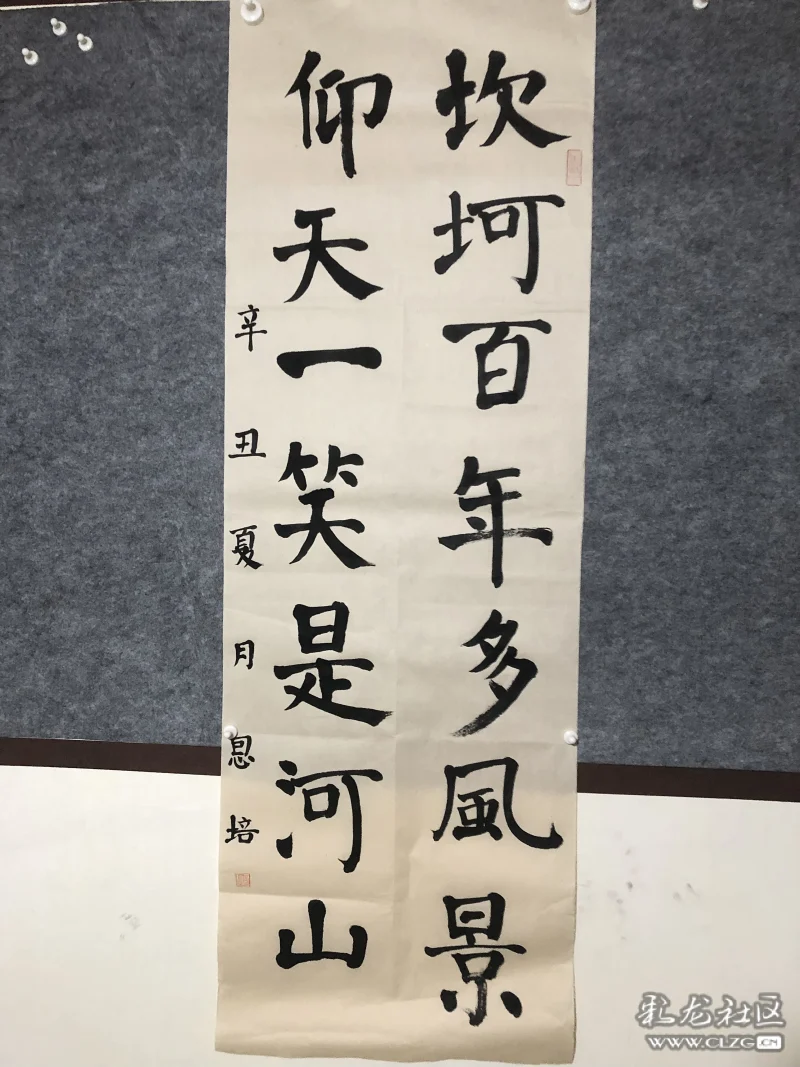 坎坷百年多風景
仰天一笑是河山
辛丑夏月息培
彩龙社区
WWW.CLZG.CN